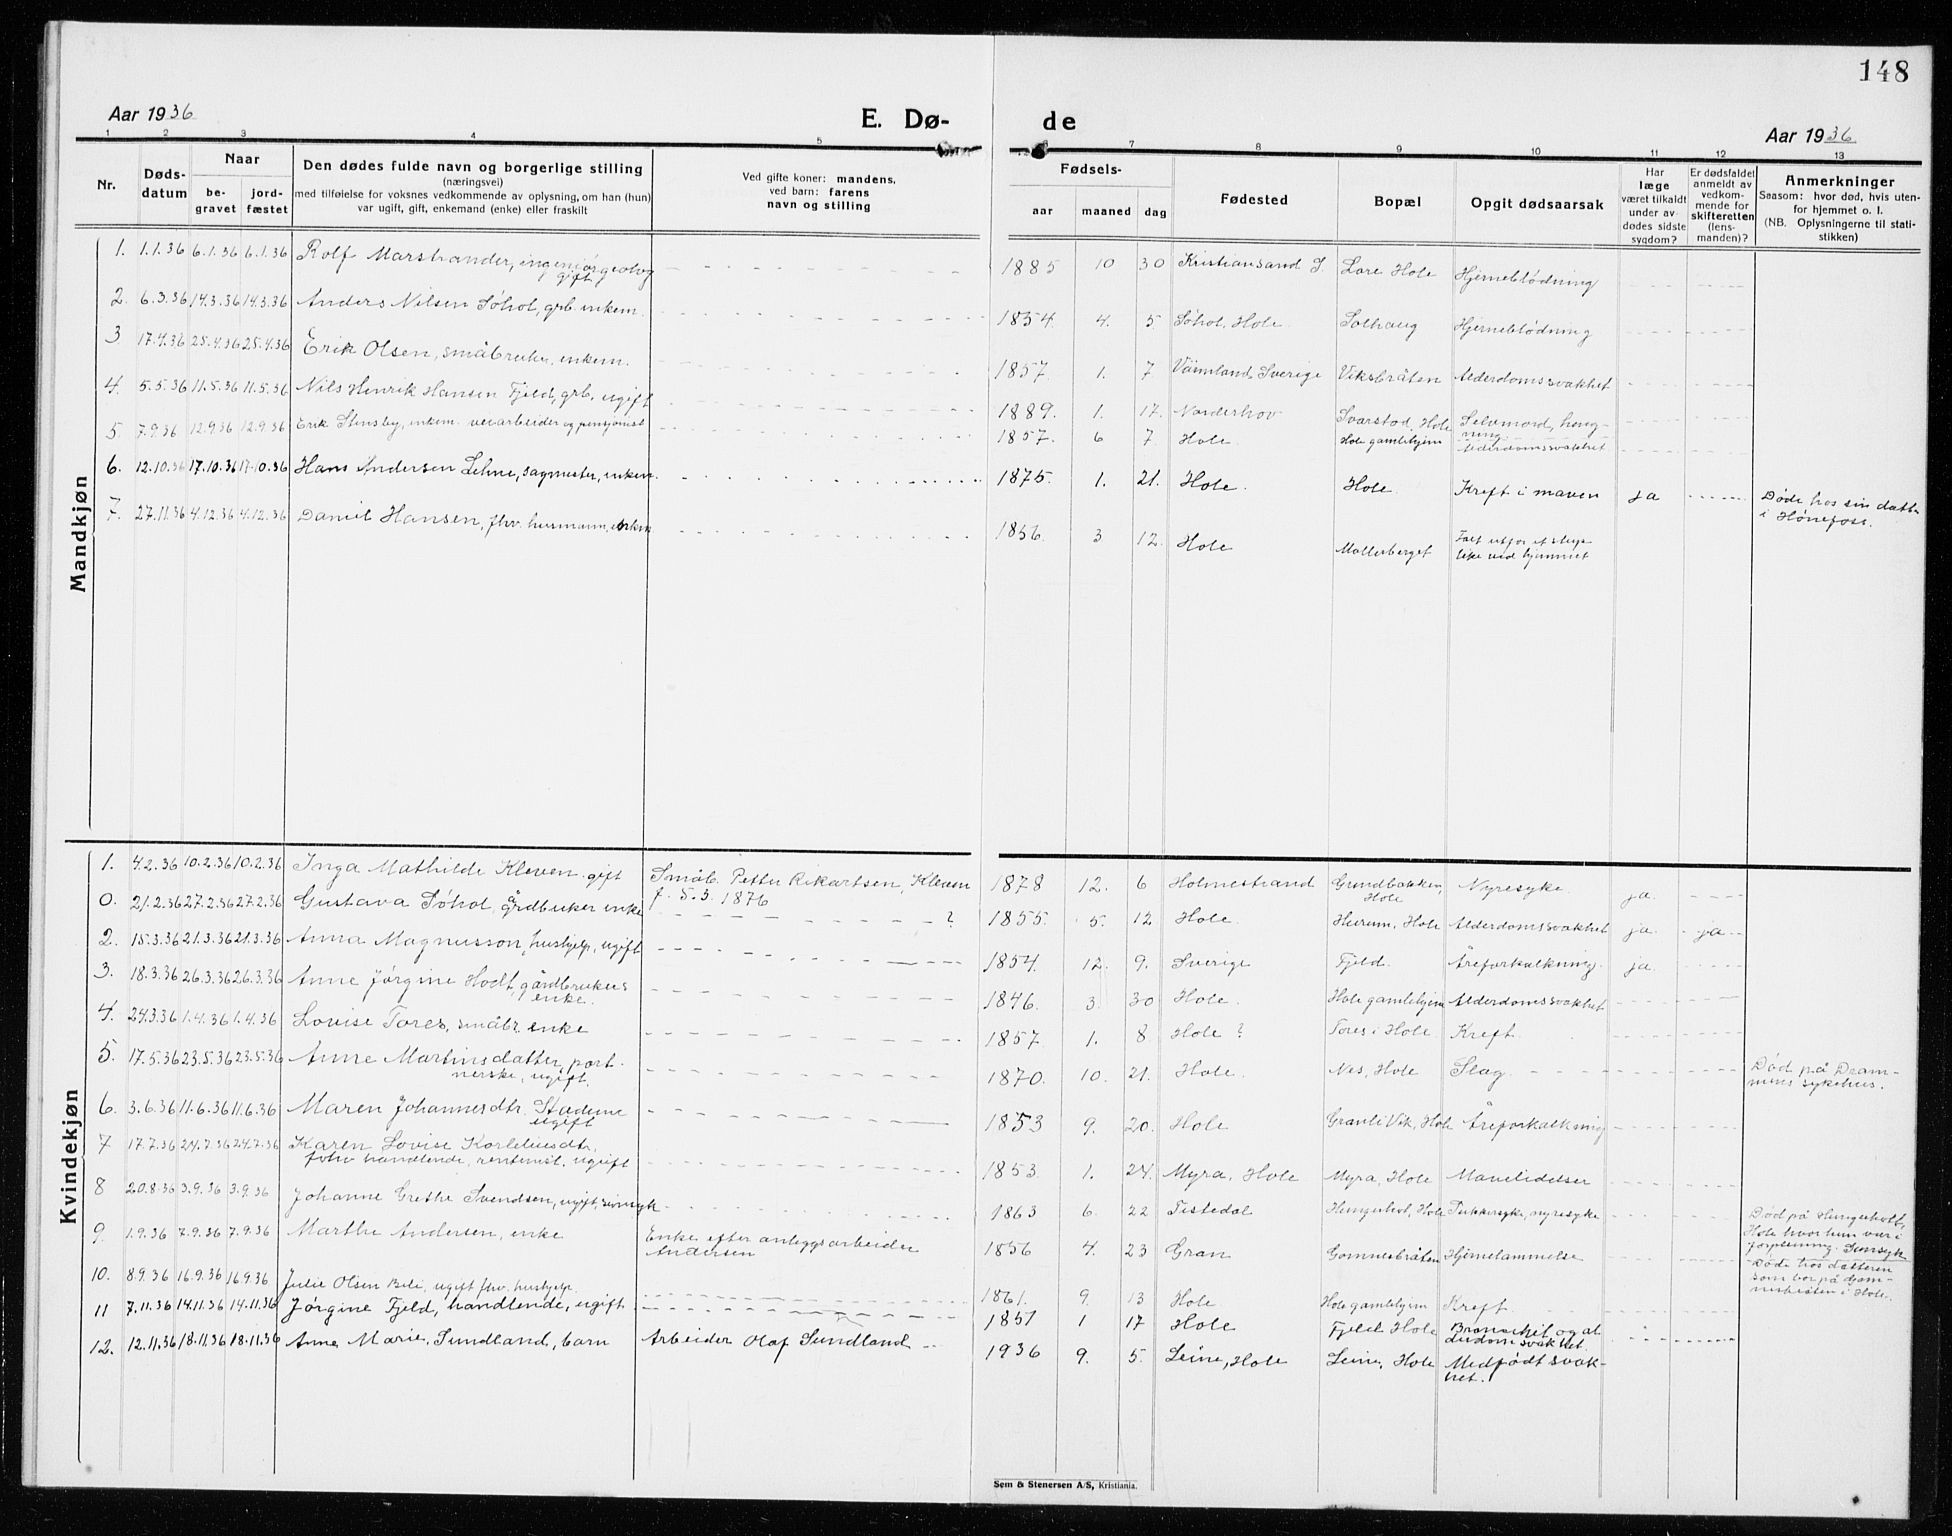 148
Aar 1936
E. Dø-
de
Aar 1936
1 2 3 4 5 6 7 8 9 10 11 12 13
Nr.
Døds-
datum
Naar
be-
gravet
jord-
fæstet
Den dødes fulde navn og borgerlige stilling
(næringsvei)
med tilføielse for voksnes vedkommende av oplysning, om han (hun)
var ugift, gift, enkemand (enke) eller fraskilt
Ved gifte koner: mandens,
ved barn: farens
navn og stilling
Fødsels-
aar maaned dag
Fødested
Bopæl
Opgit dødsaarsak
Har
læge
været tilkaldt
under av-
dødes sidste
sygdom?
Er dødsfaldet
anmeldt av
vedkom-
mende for
skifteretten
(lens-
manden)?
Anmerkninger
Saasom: hvor død, hvis uten-
for hjemmet o. l.
(NB. Oplysningerne til stati-
stikken)
Mandkjøn
1. 1.1.36 6.1.36 6.1.36 Rolf Marstrander, ingeniørgeolog
gift
1885 10 30 Kristiansand S. Lore Hole Hjerneblødning
2. 6.3.36 14.3.36 14.3.36 Anders Nilsen Søhol, grb. enkem.
1854 4. 5 Søhol, Hole Solhaug Hjerneblødning
3 17.4.36 25.4.36 25.4.36 Erik Olsen, småbruker, enkem.
1857 1. 7 Värmland, Sverige Viksbråten Alderdomssvakhet
4. 5.5.36 11.5.36 11.5.36 Nils Henrik Hansen Fjeld, grb. ugift
1889. 1. 17. Norderhov Svarstad, Hole Selvmord, heng-
ning
5. 7.9.36 12.9.36 12.9.36 Erik Stensby, enkem. veiarbeider og pensjonist
1857. 6 7 Hole Hole gamlehjem Alderdomssvakhet
6. 12.10.36 17.10.36 17.10.36 Hans Andersen Lehne, sagmester, enkem.
1875. 1. 21. Hole. Hole. Kreft i maven ja
7. 27.11.36 4.12.36 4.12.36 Daniel Hansen, fhv. husmann, enkem
1856. 3 12. Hole Mollerberget
Falt utfor et stup
ikke ved hjemmet
Døde hos sin datter
i Hønefoss.
Kvindekjøn
1. 4.2.36 10.2.36 10.2.36 Inga Mathilde Kleven. gift Småb. Petter Rikartsen, Kleven
f. 5.3. 1876
1878 12. 6 Holmestrand Grundbakken,
Hole Nyresyke. ja
0. 21.2.36 27.2.36 27.2.36 Gustava Søhol, gårdbruker enke ?
1855. 5. 12 Hole. Hurum, Hole Alderdomssvakhet ja. ja
2. 15.3.36 21.3.36 21.3.36 Anna Magnusson, hushjelp, ugift
1854. 12. 9. Sverige Fjeld. Åreforkalkning. ja
3. 18.3.36 26.3.36 26.3.36 Anne Jørgine Hodt, gårdbrukers
enke.
1846. 3. 30 Hole. Hole gamlehjem Alderdomssvakhet
4. 24.3.36 1.4.36 1.4.36 Lovise Tores, småbr. enke
1857. 1. 8 Hole ? Tores i Hole Kreft.
5. 17.5.36 23.5.36 23.5.36 Anne Martinsdatter, port-
nerske, ugift.
1870. 10. 21. Hole. Nes, Hole Slag
Død på Dram-
mens sykehus.
6. 3.6.36 11.6.36 11.6.36 Maren Johannesdtr.
ugift
1853 9. 20. Hole Granli Vik, Hole Åreforkalkning
7 17.7.36 24.7.36 24.7.36 Karen Lovise Korleliusdtr.
fhv handlende, rentenist, ugift
1853. 1. 24. Myra, Hole Myra, Hole Mavelidelser
8 20.8.36 3.9.36 3.9.36 Johanne Grethe Svendsen, ugift, sinnsyk
1863 6. 22 Tistedal Hungerhol, Hole Sukkersyke, nyresyke
Død på Hungerholt,
Hole hvor hun var i
forpleining. Sinnsyk
9. 1.9.36 7.9.36 7.9.36 Marthe Andersen, enke Enke efter anleggsarbeider
Andersen
1856 4. 23 Gran Gomnesbråten Hjernelammelse
Døde hos datteren
som bor på Gom-
nesbråten i Hole.
10. 8.9.36 16.9.36 16.9.36 Julie Olsen Bili, ugift fhv. hushjelp
1861. 9. 13 Hole Hole gamlehjem Kreft.
11 7.11.36 14.11.36 14.11.36 Jørgine Fjeld, handlende, ugift
1851 1 17 Hole Fjeld Hole Bronchit og al-
derdomssvakhet.
12. 12.11.36 18.11.36 18.11.36 Anne Marie Sundland, barn Arbeider Olaf Sundland
1936 9. 5. Leine, Hole Leine, Hole Medfødt svak-
het.
Sem & Stenersen A/S, Kristiania.